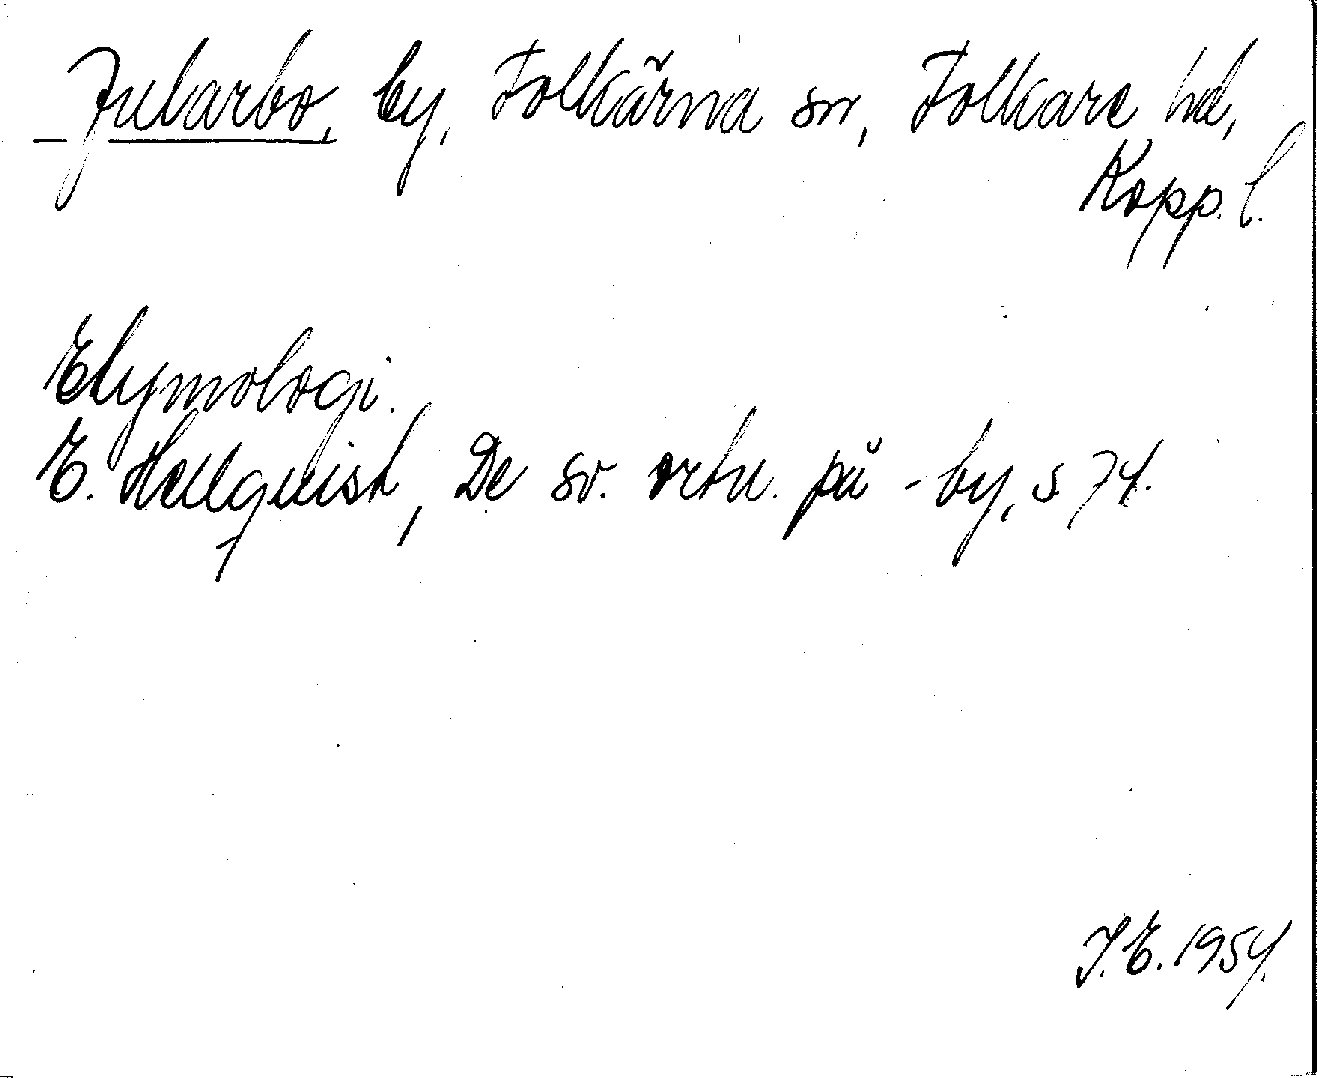 Jularbo, by, Folkärna sn, Folkare hd,
Kopp. l.
Etymologi.
E. Hellquist, De sv. ortn. på -by, s 74.
J. E. 1954.